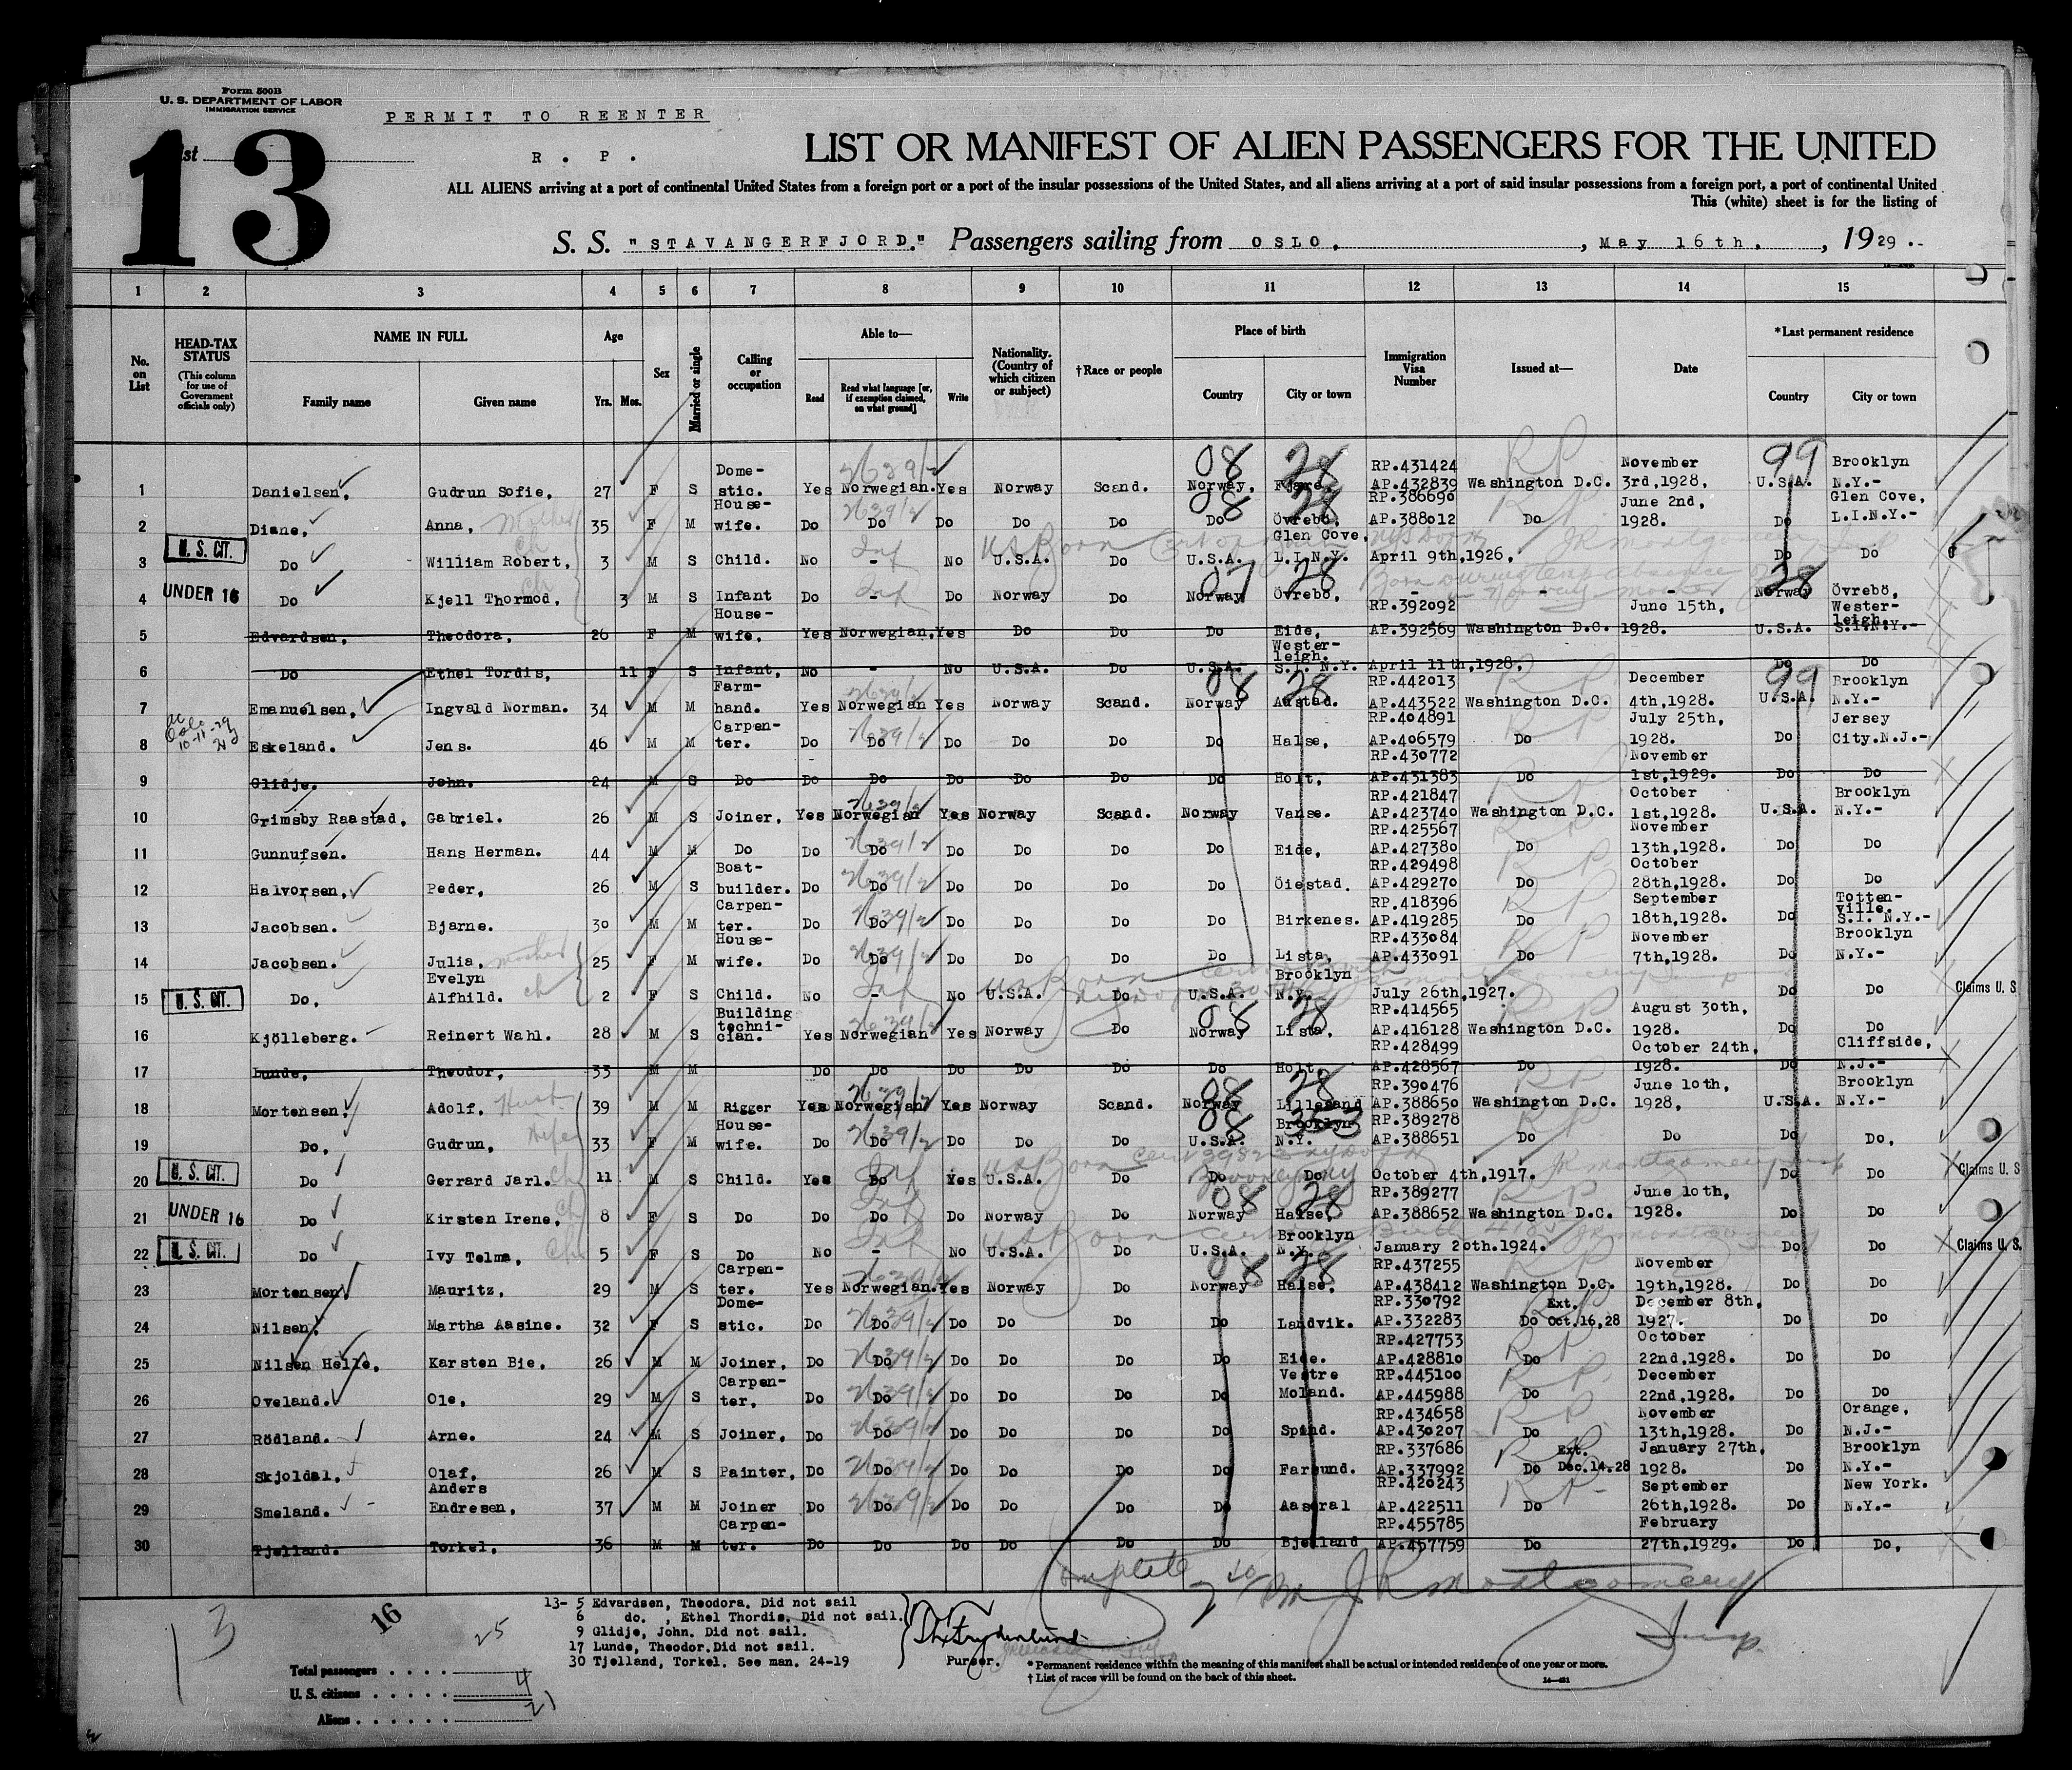 Form 500B
U. S. DEPARTMENT OF LABOR
IMMIGRATION SERVICE
PERMIT TO REENTER
13
R. P.
LIST OR MANIFEST OF ALIEN PASSENGERS FOR THE UNITED
ALL ALIENS arriving at a port of continental United States from a foreign port or a port of the insular possessions of the United States, and all aliens arriving at a port of said insular possessions from a foreign port, a port of continental United
This (white) sheet is for the listing of
S. S. "STAVANGERFJORD." Passengers sailing from OSLO, , May 16th. , 1929.-
1 2 3 4 5 6 7 8 9 10 11 12 13 14 15
No. on List
HEAD-TAX STATUS (This column for use of Government officials only)
NAME IN FULL Family name Given name
Age Yrs. Mos.
Sex
Married or single
Calling or occupation
Able to— Read Read what language [or, if exemption claimed, on what ground] Write
Nationality. (Country of which citizen or subject)
†Race or people
Place of birth Country City or town
Immigration Visa Number
Issued at—
Date
*Last permanent residence Country City or town
1 Danielsen, Gudrun Sofie, 27 F S Dome-stic. Yes Norwegian. Yes Norway Scand. Norway, Fjære, RP.431424 AP.432839 Washington D.C. November 3rd,1928, U.S.A. Brooklyn N.Y.-
2 Diane, Anna, 35 F M House-wife. Do Do Do Do Do Do Övrebö, RP.386690 AP.388012 Do June 2nd, 1928. Do Glen Cove, L.I.N.Y.-
U. S. CIT.
3 Do William Robert, 3 M S Child. No - No U.S.A. Do U.S.A. Glen Cove, L.I.N.Y. April 9th,1926, Do Do
UNDER 16
4 Do Kjell Thormod, 3 M S Infant Do - Do Norway Do Norway Övrebö, - - - Norway Övrebö,
5 Edvardsen, Theodora, 26 F M House-wife, Yes Norwegian, Yes Do Do Do Eide, RP.392092 AP.392569 Washington D.C. June 15th, 1928. U.S.A. Wester-leigh. S.I.N.Y.-
6 Do Ethel Tordis, 11 F S Infant, No - No U.S.A. Do U.S.A. Wester-leigh. S.I. N.Y. April 11th,1928, Do Do
7 Emanuelsen, Ingvald Norman. 34 M M Farm-hand. Yes Norwegian Yes Norway Scand. Norway Austad. RP.442013 AP.443522 Washington D.C. December 4th,1928. U.S.A. Brooklyn N.Y.-
8 Eskeland. Jens. 46 M M Carpen-ter. Do Do Do Do Do Do Halse, RP.404891 AP.406579 Do July 25th, 1928. Do Jersey City.N.J.-
9 Glidje. John. 24 M S Do Do Do Do Do Do Do Holt, RP.430772 AP.431383 Do November 1st,1929. Do Do
10 Grimsby Raastad, Gabriel. 26 M S Joiner, Yes Norwegian Yes Norway Scand. Norway Vanse. RP.421847 AP.423740 Washington D.C. October 1st,1928. U.S.A. Brooklyn N.Y.-
11 Gunnufsen. Hans Herman. 44 M M Do Do Do Do Do Do Do Eide, RP.425567 AP.427380 Do November 13th,1928. Do Do
12 Halvorsen, Peder, 26 M S Boat-builder. Do Do Do Do Do Do Öiestad. RP.429498 AP.429270 Do October 28th,1928. Do Do
13 Jacobsen. Bjarne. 30 M M Carpen-ter. Do Do Do Do Do Do Birkenes. RP.418396 AP.419285 Do September 18th,1928. Do Totten-ville. S.I. N.Y.-
14 Jacobsen. Julia, 25 F M House-wife. Do Do Do Do Do Do Lista, RP.433084 AP.433091 Do November 7th,1928. Do Brooklyn N.Y.-
U. S. CIT.
15 Do. Evelyn Alfhild. 2 F S Child. No - No U.S.A. Do U.S.A. Brooklyn N.Y. July 26th,1927. Do Do Claims U. S
16 Kjölleberg. Reinert Wahl. 28 M S Building techni-cian. Yes Norwegian Yes Norway Do Norway Lista, RP.414565 AP.416128 Washington D.C. August 30th, 1928. Do Do
17 Lunde, Theodor, 33 M M Do Do Do Do Do Do Holt, RP.428499 AP.428567 Do October 24th, 1928. Do Cliffside, N.J.-
18 Mortensen. Adolf. 39 M M Rigger Yes Norwegian Yes Norway Scand. Norway Lillesand RP.390476 AP.388650 Washington D.C. June 10th, 1928, U.S.A. Brooklyn N.Y.-
19 Do. Gudrun, 33 F M House-wife. Do Do Do Do Do U.S.A. Brooklyn N.Y. RP.389278 AP.388651 Do Do Do Do.
U. S. CIT.
20 Do Gerrard Jarl. 11 M S Child. Yes Do Yes U.S.A. Do Do Do October 4th,1917. Do Do Claims U. S
UNDER 16
21 Do Kirsten Irene, 8 F S Do Do Do Do Norway Do Norway Halse, RP.389277 AP.388652 Washington D.C. June 10th, 1928. Do Do
U. S. CIT.
22 Do Ivy Telma, 5 F S Do No - No U.S.A. Do U.S.A. Brooklyn N.Y. January 20th.1924. Do Do Claims U. S.
23 Mortensen Mauritz, 29 M S Carpen-ter. Yes Norwegian. Yes Norway Do Norway Halse, RP.437255 AP.438412 Washington D.C. November 19th,1928. Do Do
24 Nilsen. Martha Aasine. 32 F S Dome-stic. Do Do Do Do Do Do Landvik. RP.330792 AP.332283 Do Ext. Oct.16,28 December 8th, 1927. Do Do
25 Nilsen Helle, Karsten Bie, 26 M M Joiner, Do Do Do Do Do Do Eide. RP.427753 AP.428810 Do October 22nd,1928. Do Do
26 Oveland. Ole, 29 M S Carpen-ter, Do Do Do Do Do Do Vestre Moland. RP.445100 AP.445988 Do December 22nd,1928. Do Do
27 Rödland. Arne. 24 M S Joiner, Do Do Do Do Do Do Spind. RP.434658 AP.430207 Do November 13th,1928. Do Orange, N.J.-
28 Skjoldal, Olaf, 26 M S Painter, Do Do Do Do Do Do Farsund. RP.337686 AP.337992 Do Ext. Dec.14.28 January 27th, 1928. Do Brooklyn N.Y.-
29 Smeland. Anders Endresen, 37 M M Joiner Do Do Do Do Do Do Aaseral RP.420243 AP.422511 Do September 26th,1928. Do New York. N.Y.-
30 Tjelland. Torkel, 36 M M Carpen-ter. Do Do Do Do Do Do Bjelland RP.455785 AP.457759 Do February 27th.1929. Do Do.
Complete J R Montgomery
13 16 25
13- 5 Edvardsen, Theodora. Did not sail
6 do. , Ethel Thordis. Did not sail.
9 Glidje, John. Did not sail.
17 Lunde, Theodor.Did not sail.
30 Tjelland, Torkel. See man. 24-19
Purser.
Total passengers
U. S. citizens 4
Aliens 21
* Permanent residence within the meaning of this manifest shall be actual or intended residence of one year or more.
† List of races will be found on the back of this sheet.